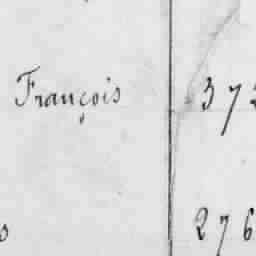 François 37
276